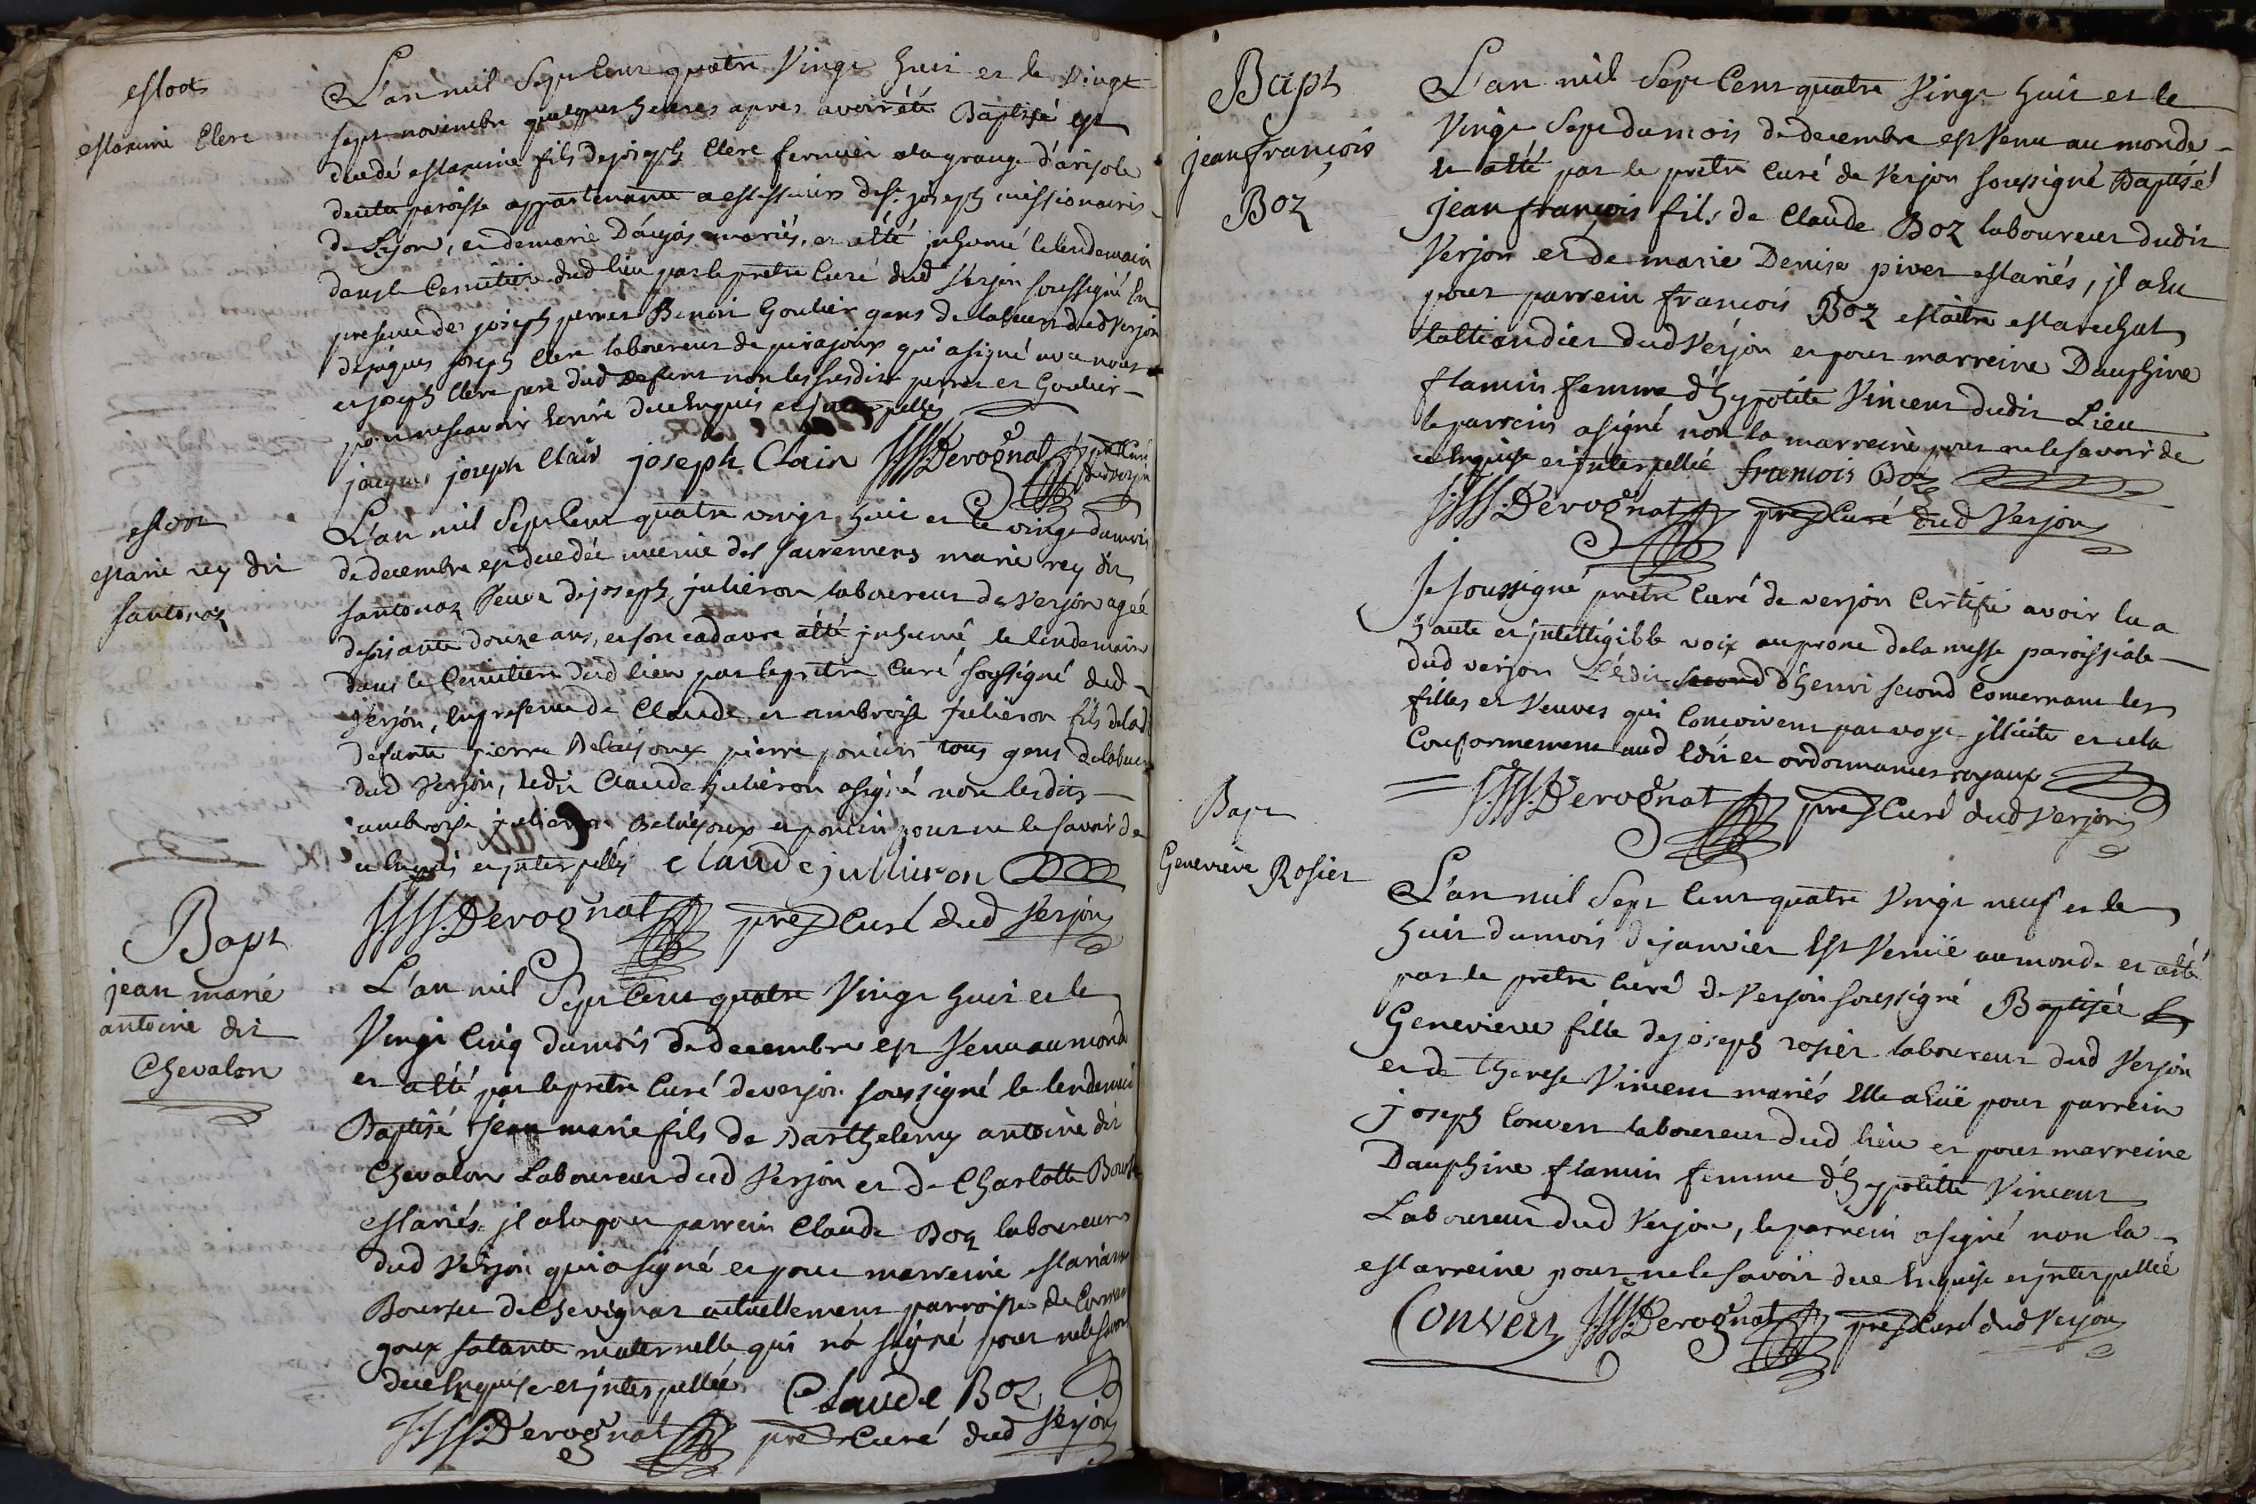 Mort
Maximin Clerc
L'an mil Sept Cent quatre Vingt huit et le Vingt
sept novembre quelques heures apres avoir été Baptisé est
decedé Maximin fils de joseph Clerc fermier a la grange d'arisole
de cette paroisse appartenante a Messieurs de St joseph missionaires
de Lyon, et de marie Daujas mariés, et a été inhumé le lendemain
dans le Cemitiere dud lieu par le prêtre Curé dud Verjon soussigné En
presence de joseph perret Benoit Goulier gens de labeur dud Verjon
de jaques joseph Clerc laboureur de pirajoux qui a signé avec nous
et joseph Clerc pere dud defunt non les susdits perret et Goulier
pour ne scavoir Ecrire de ce Enquis et interpellés
jaques joseph Clair joseph Clain JJJJ Derognat pre Curé
dud Verjon
Mort
Marie rey dit
Santonax
L'an mil Sept Cent quatre vingt huit et le vingt du mois
de decembre est decedée munie des sacremens marie rey dit
santonax Veuve de joseph julieron laboureur de Verjon agée
de soisante douze ans, et son cadavre a été inhumé le lendemain
dans le Cemitiere dud lieu par le prêtre Curé soussigné dud
Verjon, En presence de Claude et ambroise julieron fils de lad
defunte pierre Delaijoux pierre poncin tous gens de labeur
dud Verjon, ledit Claude julieron a signé non lesdits
ambroise julieron Delaijoux et poncin pour ne le savoir de
ce Enquis et interpellés claude jullieron
JJJJ Derognat pre Curé dud Verjon
Bapt
jean marie
antoine dit
Chevalon
L'an mil Sept Cent quatre Vingt huit et le
Vingt Cinq du mois de decembre est Venu au monde
et a été par le prêtre Curé de verjon soussigné le lendemain
Baptisé jean marie fils de Barthelemy antoine dit
Chevalon Laboureur dud Verjon et de Charlotte
Mariés il a Eu pour parrein Claude Boz laboureur
dud Verjon qui a signé et pour marreine Marianne
de Chevignat actuellement parroisse de
goux sa tante maternelle qui n'a signé pour ne le savoir
de ce Enquise et interpellée Claude Boz
JJJJ Derognat pre Curé dud Verjon
Bapt
jean françois
Boz
L'an mil Sept Cent quatre Vingt huit et le
Vingt Sept du mois de decembre est Venu au monde
et a été par le prêtre Curé de Verjon soussigné Baptisé
jean françois fils de Claude Boz laboureur dudit
Verjon et de marie Denise pivet Mariés, il a Eu
pour parrein françois Boz Maitre Marechal
talliandier dud Verjon et pour marreine Dauphine
flamin femme d'hypolite Vincent dudit Lieu
le parrein a signé non la marreine pour ne le savoir de
ce Enquise et interpellée francois Boz
JJJJ Derognat pre Curé dud Verjon
Je soussigné prêtre Curé de verjon Certifie avoir lu a
haute et intelligible voix au prone de la messe paroissiale
dud verjon L'édit second d'henri second Concernant les
filles et Veuves qui Conçoivent par voye illicite et cela
Conformement aud Edit et ordonnances royaux
JJJJ Derognat pre Curé dud Verjon
Bapt
Genevieve Rosier
L'an mil Sept Cent quatre Vingt neuf et le
huit du mois de janvier Est Venüe au monde et a été
par le prêtre Curé de Verjon soussigné Baptisée
Genevieve fille de joseph rosier laboureur dud Verjon
et de therese Vincent mariés Elle a Eüe pour parrein
joseph Convert laboureur dud lieu et pour marreine
Dauphine flamin femme d'hypolitte Vincent
Laboureur dud Verjon, le parrein a signé non la
Marreine pour ne le savoir de ce Enquise et interpellée
Convert JJJJ Derognat pre Curé dud Verjon